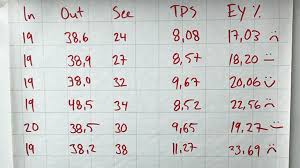 In Out See TPS EY %
19 38,6 24 8,08 17,03 :(
19 38,9 27 8,57 18,20 :|
19 38,1 32 9,67 20,06 :)
19 48,5 34 8,52 22,56 :)
20 38,5 30 9,65 19,27 :|
19 38,2 38 11,27 23,69 :(